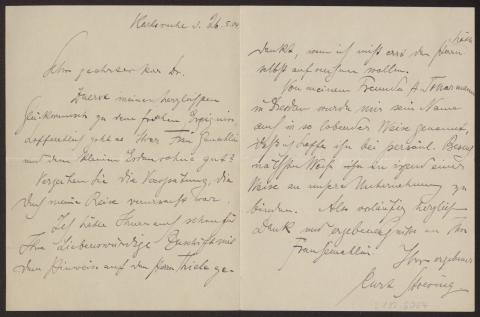 Karlsruhe d. 26.5.04
Sehr geehrter Herr Dr.
Zuerst meinen herzlichsten
Glückwunsch zu dem frohen Ereignis,
hoffentlich geht es Ihrer Frau Gemahlin
und dem kleinen Erdensohne gut?
Verzeihen Sie die Verspätung, die
durch meine Reise verursacht war.
Ich hätte Ihnen auch schon für
Ihre liebenswürdige Zuschrift mit
dem Hinweis auf den Herrn Thiele ge-
dankt, wenn ich nicht erst den Herrn
selbst aufsuchen wollen.
Von meinem Freunde A.
in Dresden wurde mir sein Name
auch in so lobender Weise genannt,
daß ich hoffe ihn bei persönl.
Weise ihn in irgend einer
Weise an unsere Unternehmung zu
binden. Also vorläufig herzlich
Dank und
Frau Gemahlin
Ihr ergebener
Curt Stoeving